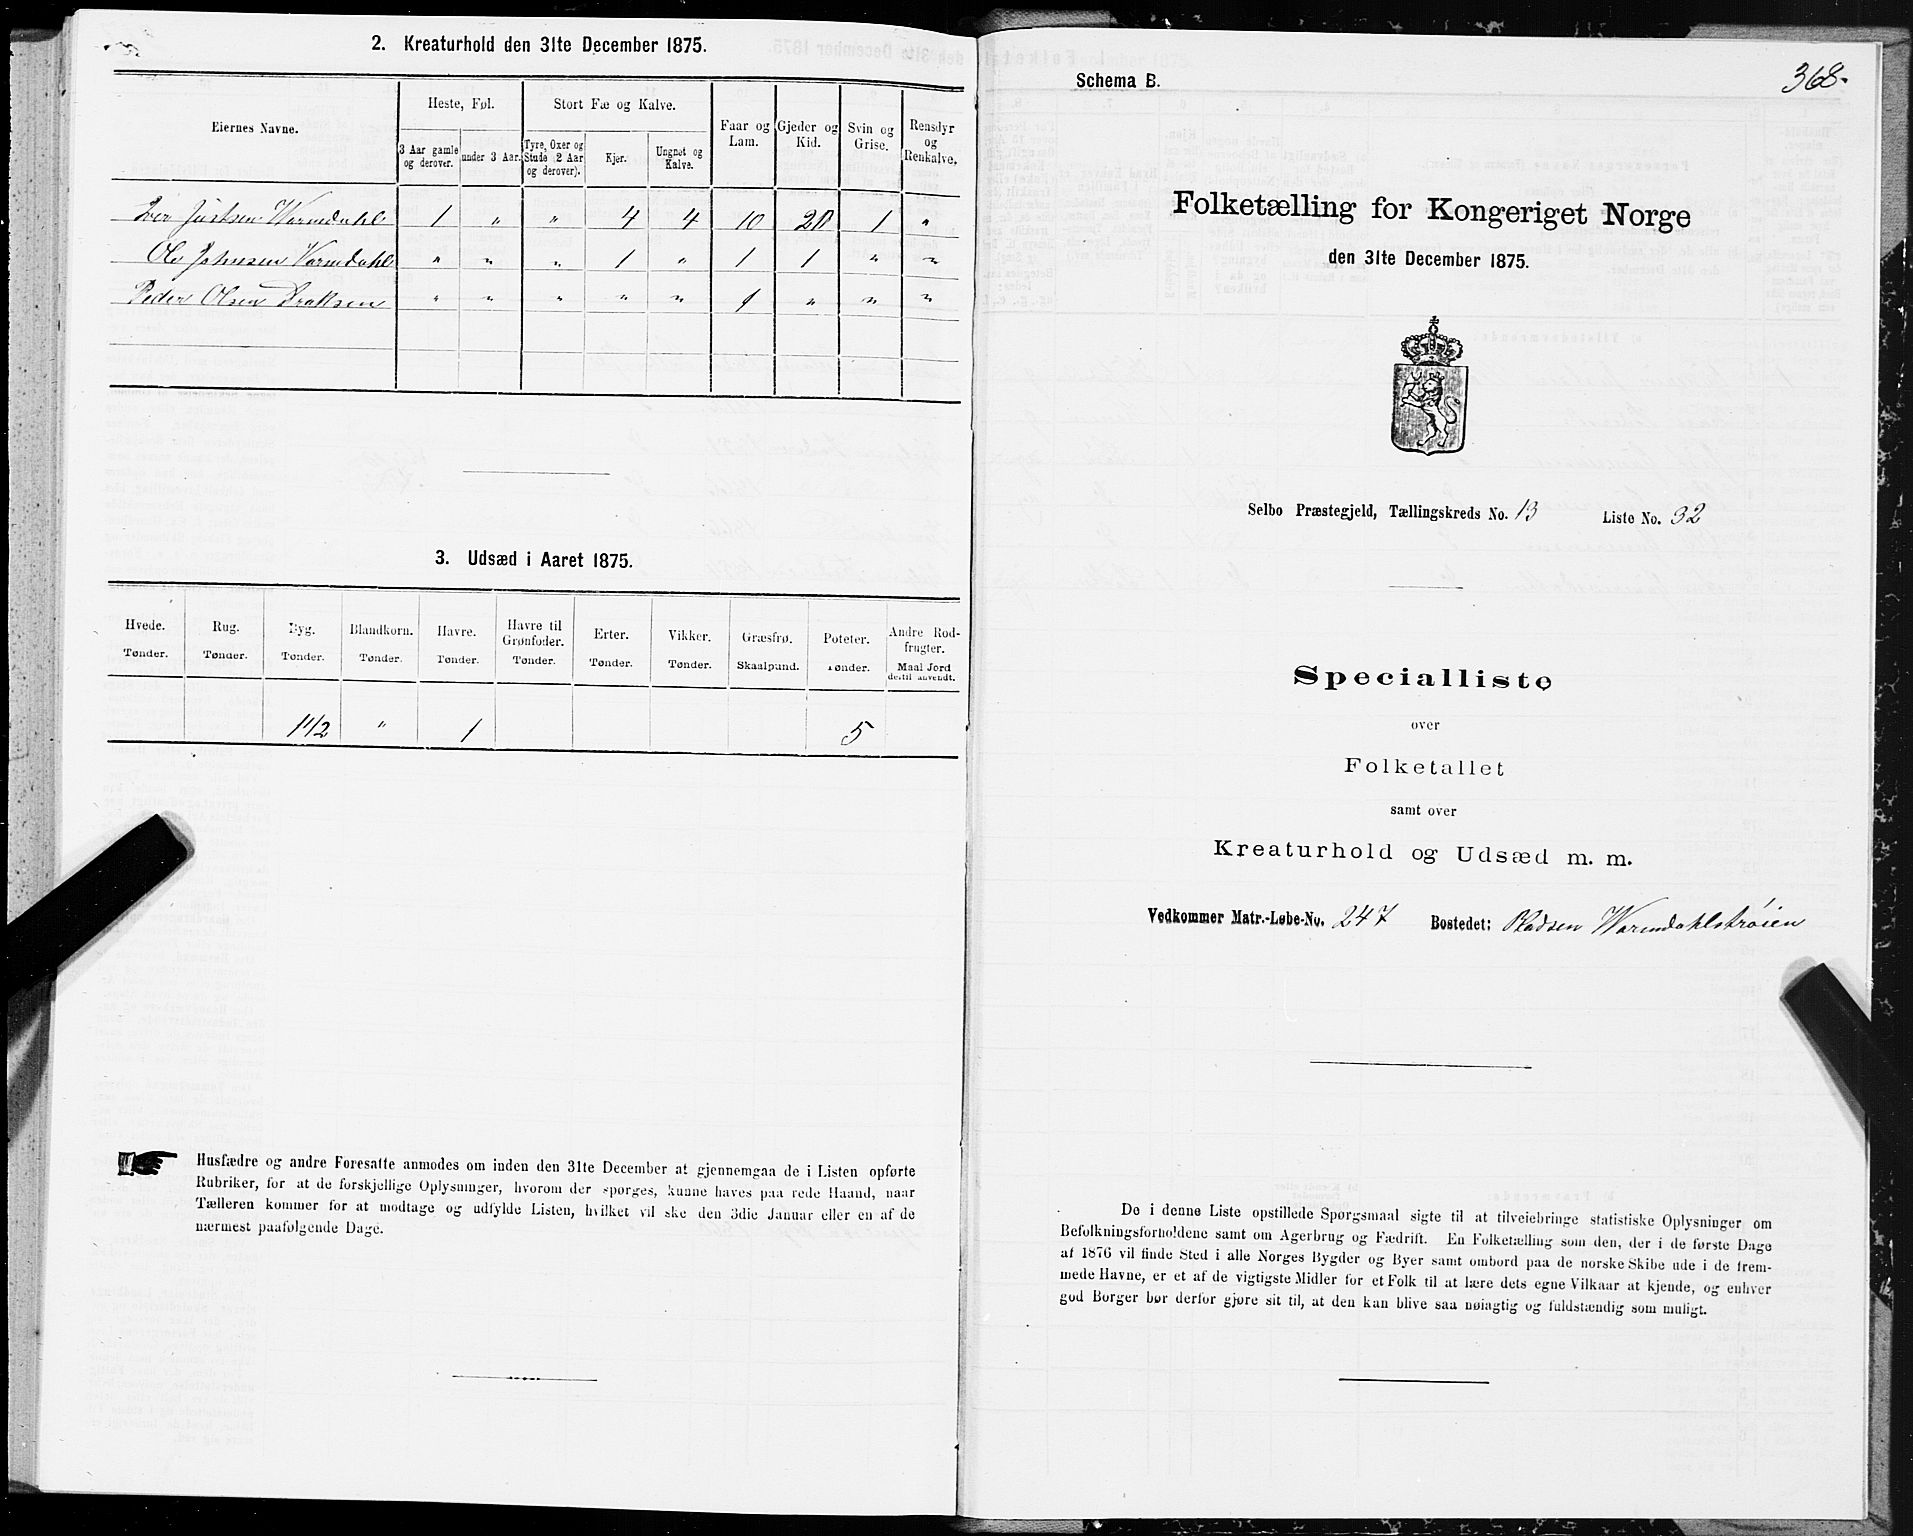 2. Kreaturhold den 31te December 1875.
Eiernes Navne.
Heste, Føl.
Stort Fæ og Kalve.
Faar og Lam.
Gjeder og Kid.
Svin og Grise.
Rensdyr og Renkalve.
3 Aar gamle og derover.
under 3 Aar.
Tyre, Oxer og Stude (2 Aar og derover).
Kjer.
Ungnøt og Kalve.
Justsen Warmdahl 1 " " 4 4 10 20 1 "
Ole Johnsen Varmdahl " " " 1 " 1 1 " "
Peder Olsen " " " " " 1 " " "
3. Udsæd i Aaret 1875.
Hvede. Rug. Byg. Blandkorn. Havre. Havre til Grønfoder. Erter. Vikker. Græsfrø. Poteter. Andre Rodfrugter.
Tønder. Tønder. Tønder. Tønder. Tønder. Tønder. Tønder. Tønder. Skaalpund. Tønder. Maal Jord dertil anvendt.
1 1/2 " 1 5
Husfædre og andre Foresatte anmodes om inden den 31te December at gjennemgaa de i Listen opførte
Rubriker, for at de forskjellige Oplysninger, hvorom der spørges, kunne haves paa rede Haand, naar
Tælleren kommer for at modtage og udfylde Listen, hvilket vil ske den 3die Januar eller en af de
nærmest paafølgende Dage.
Schema B.
368.
Folketælling for Kongeriget Norge
den 31te December 1875.
Selbo Præstegjeld, Tællingskreds No. 13 Liste No. 32
Specialliste
over
Folketallet
samt over
Kreaturhold og Udsæd m. m.
Vedkommer Matr.-Løbe-No. 247 Bostedet: Pladsen Warmdahlstrøien
De i denne Liste opstillede Spørgsmaal sigte til at tilveiebringe statistiske Oplysninger om
Befolkningsforholdene samt om Agerbrug og Fædrift. En Folketælling som den, der i de første Dage
af 1876 vil finde Sted i alle Norges Bygder og Byer samt ombord paa de norske Skibe ude i de frem-
mede Havne, er et af de vigtigste Midler for et Folk til at lære dets egne Vilkaar at kjende, og enhver
god Borger bør derfor gjøre sit til, at den kan blive saa nøiagtig og fuldstændig som muligt.